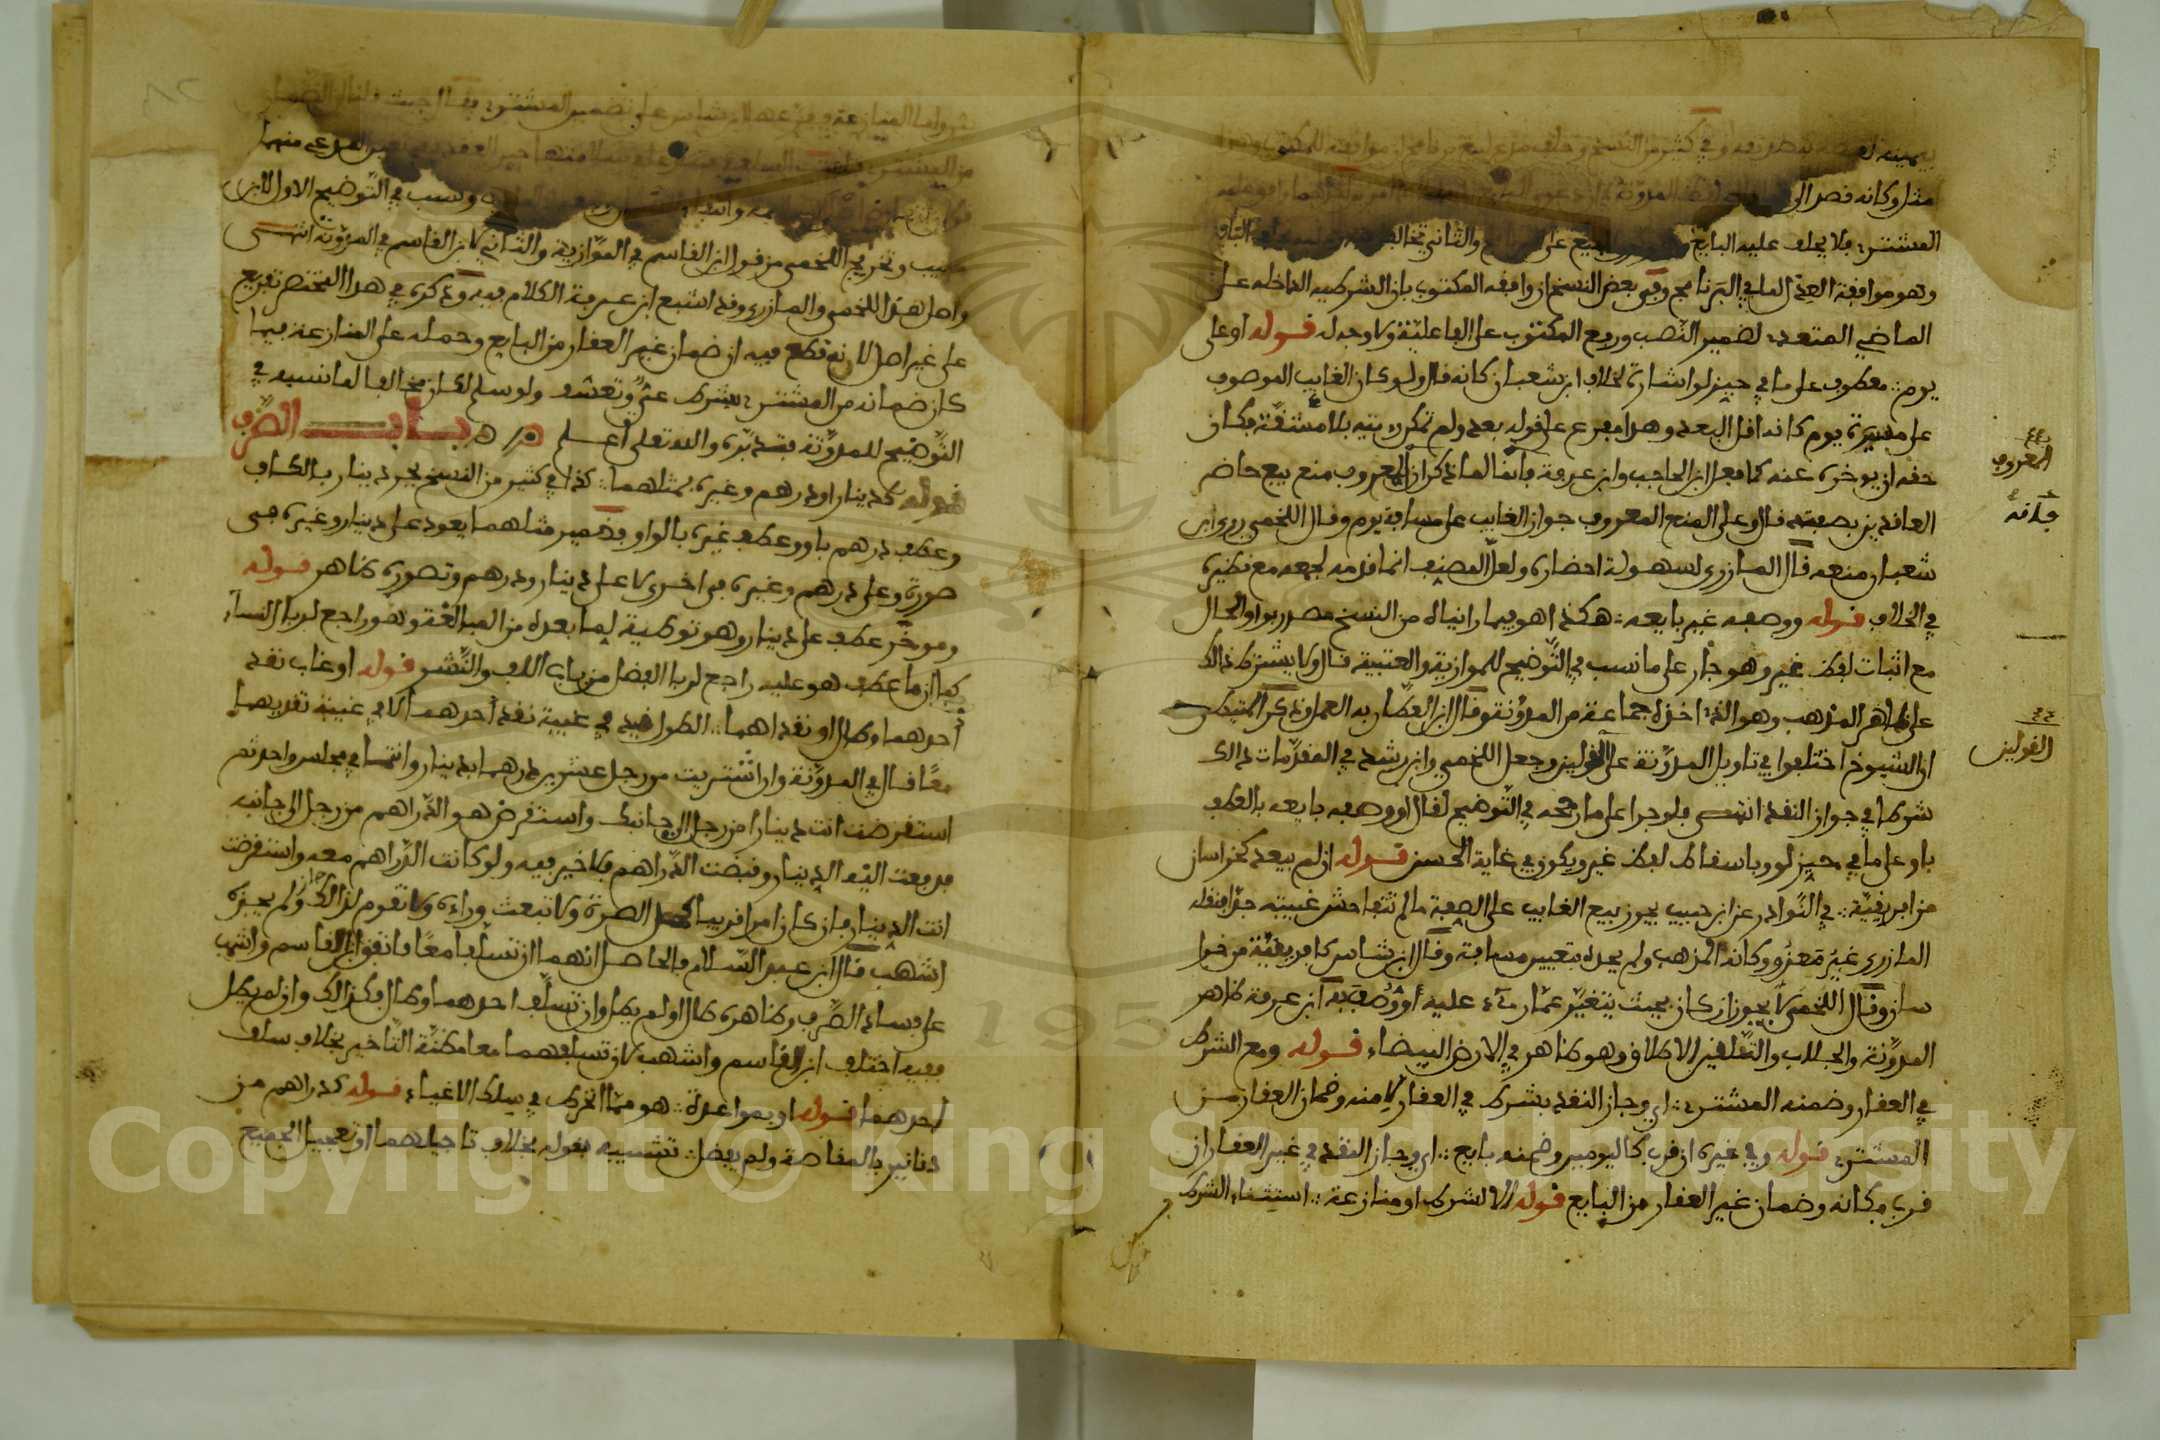 مثلا وكانه فصد الى
المشتري فلا يحلف عليه البايع
وهو موافقة العدّ لما في البرنامج وفي بعض النسخ ان وافقه المكتوب بان الشرطية الداخلة على
الماضي المتعدي لضمير النّصب ورفع المكتوب على الفاعليّة ولا وجه له قوله او على
يوم معطوف على ما في حيز لو اشارة لخلاف ابن شعبان كانه قال ولو كان الغايب الموصوف
على مسيرة يوم كانه اقل البعد وهذا مفرع على قوله بعد ولم تمكن رءيته بلا مشقّة فكان
حقه ان يوخره عنه كما فعل ابن الحاجب وابن عرفة فانّما لما ذكر ان المعروف منع بيع حاضر
العاقدين بصفته قال وعلى المنع المعروف جواز الغايب على مسافة يوم وقال اللخمي روى ابن
شعبان منعه قال المازري لسهولة احضاره ولعلّ المصنف انما قدمه لجمعه مع نظيره
في الخلاف قوله ووصفه غير بايعه هكذا هو فيما رايناه من النسخ مصدر بواو الحال
مع اثبات لفظ غير وهو جار على ما نسب في التّوضيح للموازية والعتبية قال ولا يشترط ذالك
على ظاهر المذهب وهو الذي اخذه جماعة من المدوّنة وقال ابن العطّار به العمل وذكر المتيطي
ان الشيوخ اختلفوا في تاويل المدوّنة على القولين وجعل اللخمي وابن رشد في المقدّمات ذالك
شرطا في جواز النقد انتهى فلو جرا على ما رجحه في التّوضيح لقال او وصفه بايعه بالعطف
باو على ما في حيز لو وباسقاط لفظ غير ويكون في غاية الحسن قوله ان لم يبعد كخراسان
من افريقيّة في النّوادر عن ابن حبيب يجوز بيع الغايب على الصفة ما لم تتفاحش غيبته جدّا فنقله
المازري غير معزو وكانه المذهب ولم يحده بتعيين مسافة وقال ابن شاس كافريقيّة من خرا
سان وقال اللخمي لا يجوز ان كان بحيث يتغيّر عمّا رءي عليه أو وُصِفَ به ابن عرفة ظاهر
المدوّنة والجلاب والتّلقين الاطلاق وهو ظاهر في الارض البيضاء قوله ومع الشرط
في العقار وضمنه المشتري اي وجاز النقد بشرط في العقار لامنه وضمان العقار من
المشتري قوله وفي غيره ان قرب كاليومين وضمنه بايع اي وجاز النقد في غير العقار ان
قرب مكانه وضمان غير العقار من البايع قوله الا لشرط او منازعة استثناء الشرط
المعروف
القولين
ونسب في التّوضيح الاول لابن
حبيب وتخريج اللخمي من قول ابن القاسم في الموّازية والثاني لابن القاسم في المدوّنة انتهى
واصل هذا اللخمي والمازري وقد اشبع ابن عرفة الكلام فيه وذكره في هذا المختصر تفريع
على غير اصل لانه قطع فيه ان ضمان غير العقار من البايع وحمله على المنازعة فيما
كان ضمانه من المشتري بشرط عيّ وتعسّف ولو سلم لكان مخالفا لما نسبه في
التّوضيح للمدوّنة فتدبّره والله تعلى أعلم باب الصّرف
قوله كدينار او درهم وغيره بمثلهما كذا في كثير من النسخ بجر دينار بالكاف
وعطف درهم باو وعطف غيره بالواو فضمير مثلهما يعود على دينار وغيره في
صورة وعلى درهم وغيره في اخرى لا على دينار ودرهم وتصوره ظاهر قوله
ومؤخّر عطف على دينار وهو توطية لما بعده من المبالغة وهو راجع لربا النساء
كما ان ما عطف هو عليه راجع لربا الفضل من باب اللف والنّشر قوله او غاب نقد
أحدهما وطال او نقداهما الطول قيد في غيبة نقد أحدهما لا في غيبة نقديهما
معًا قال في المدوّنة وان اشتريت من رجل عشرين درهما بدينار وانتما في مجلس واحد ثم
استقرضت انت دينارا من رجل الى جانبك واستقرض هو الدّراهم من رجل الى جانبه
فدفعت اليه الدينار وقبضت الدّراهم فلا خير فيه ولو كانت الدّراهم معه واستقرضت
انت الدينار فان كان امرا قريبا كحل الصرّة ولا تبعث وراءه ولا تقوم لذالك جاز ولم يجزه
اشهب قال ابن عبد السّلام فالحاصل انهما ان تسلّفا معًا فاتفق ابن القاسم واشهب
على فساد الصّرف وظاهره طال او لم يطل وان تسلّف احدهما وطال فكذالك وان لم يطل
ففيه اختلف ابن القاسم واشهب لان تسلفهما معا مظنّة التّاخير بخلاف سلف
احدهما قوله او بمواعدة هو ممّا انخرط في سلك الاغياء قوله كدراهم من
دنانير بالمقاصة ولم يفضل تشبيه بقوله بخلاف تاجيلهما او تعجيل الجميع